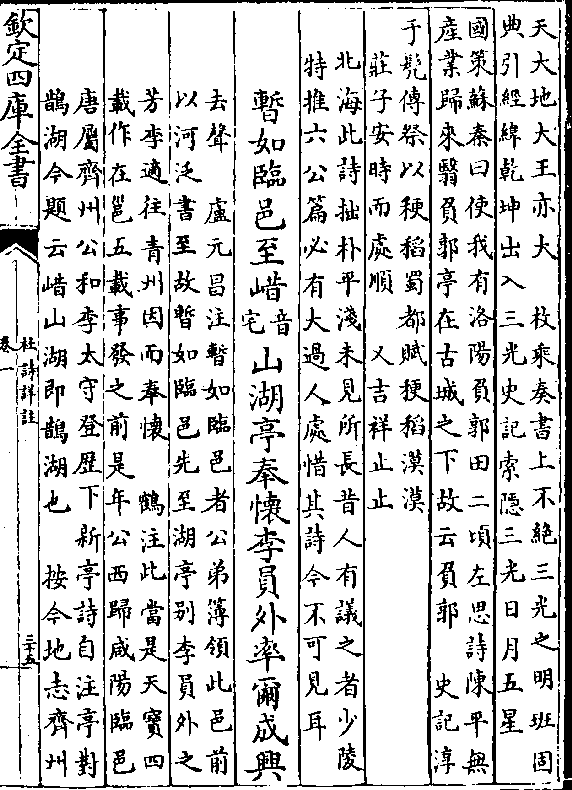 天大地大王亦大　枚乘奏書上不絶三光之明班固
典引經緯乾坤出入三光史記索隱三光日月五星
國策蘇秦曰使我有洛陽負郭田二頃左思詩陳平無
産業歸來翳負郭亭在古城之下故云負郭　史記淳
于髠傳祭以粳稻蜀都賦梗稻漠漠
莊子安時而處順　又吉祥止止
北海此詩拙朴平淺未見所長昔人有議之者少陵
特推六公篇必有大過人處惜其詩今不可見耳
暫如臨邑至㟙音宅山湖亭奉懷李員外率爾成興
去聲　盧元昌注暫如臨邑者公弟簿領此邑前
以河泛書至故暫如臨邑先至湖亭别李員外之
芳李適往青州因而奉懷　鶴注此當是天寳四
載作在邕五載事發之前是年公西歸咸陽臨邑
唐屬齊州公和李太守登歴下新亭詩自注亭對
鵲湖今題云㟙山湖即鵲湖也　按今地志齊州
欽定四庫全書
杜詩詳註
卷一
三十五